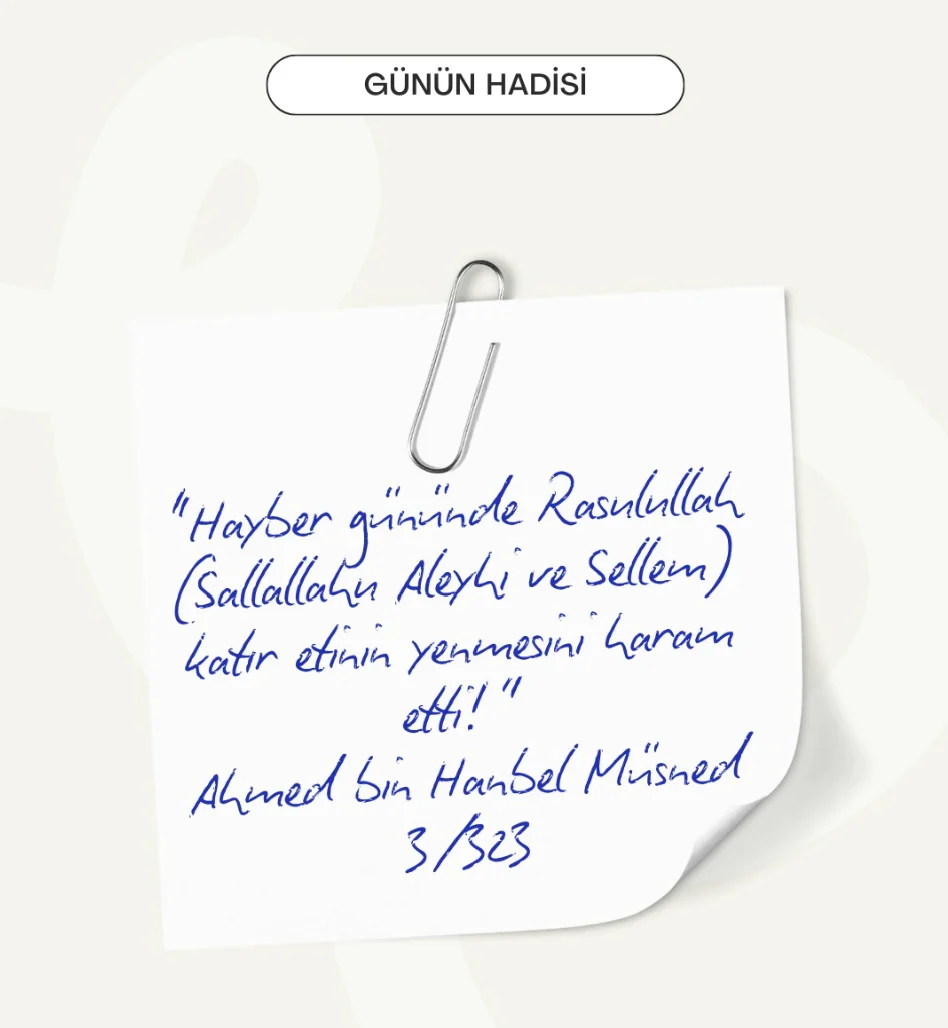 GÜNÜN HADİSİ
"Hayber gününde Rasulullah
(Sallallahu Aleyhi ve Sellem)
katır etinin yenmesini haram
etti!"
Ahmed bin Hanbel Müsned
3/323